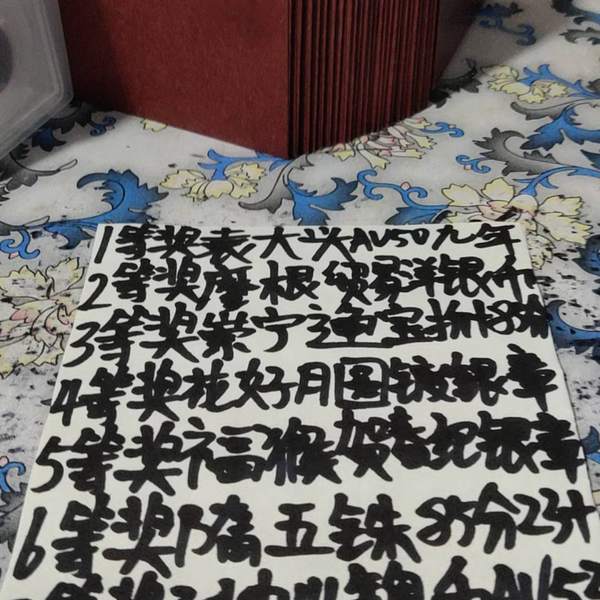 1等奖袁大头AU50九年
2等奖摩根 贸易洋银币
3等奖崇宁通宝折十85分
4等奖花好月圆镀银章
5等奖福猴贺春纪银章
6等奖隋五铢85分23十